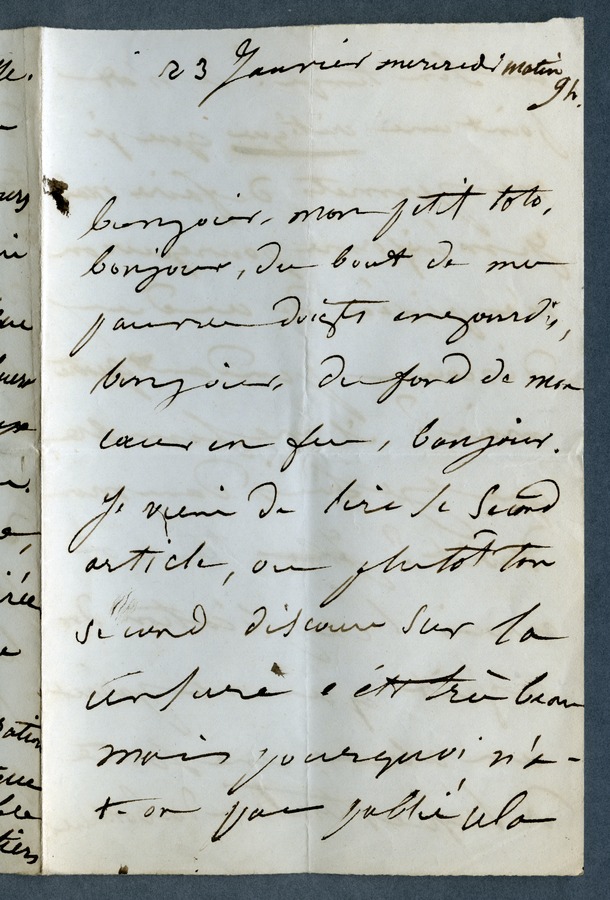 23 Janvier mercredi matin
9h.
bonjour, mon petit toto,
bonjour, du bout de me
pauvre doigts engourdis,
bonjour, du fond de mon
cœur en feu, bonjour.
Je viens de lire le second
article, ou plutôt ton
second discours sur la
censure c'est très beau
mais pourquoi n'a-
t-on pas publié cela